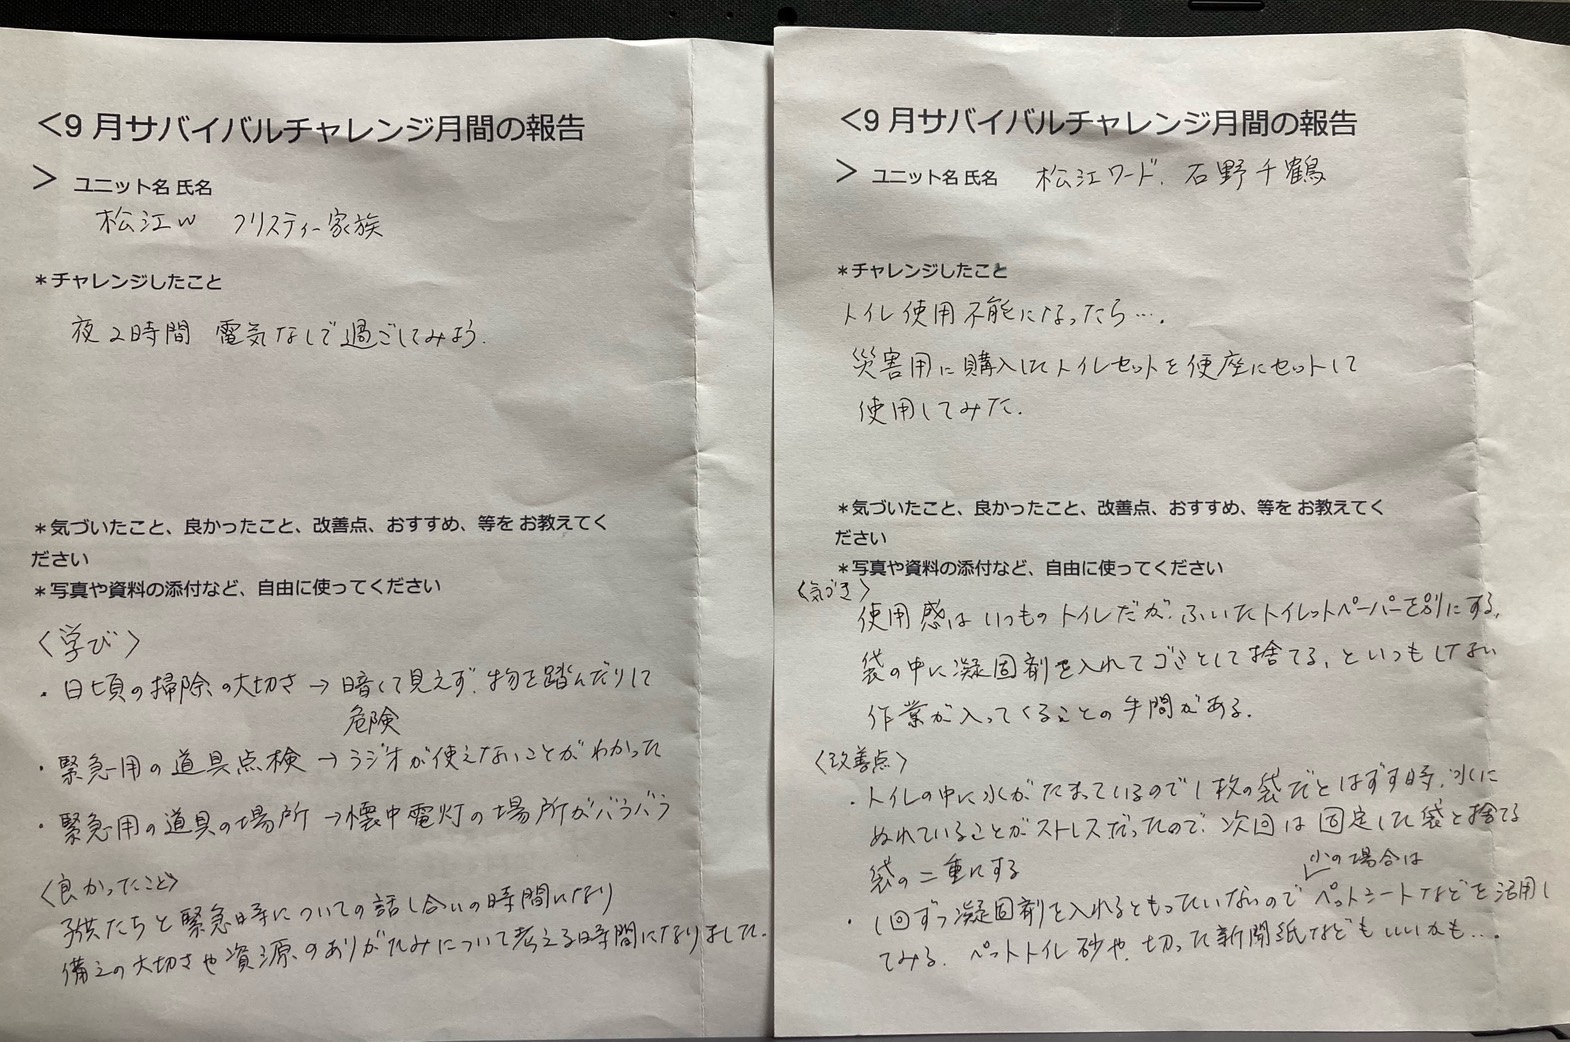 <9月サバイバルチャレンジ月間の報告
> ユニット名 氏名
松江w クリスティー家族
*チャレンジしたこと
夜2時間 電気なしで過ごしてみよう.
*気づいたこと、良かったこと、改善点、おすすめ、等を お教えてく
ださい
*写真や資料の添付など、自由に使ってください
〈学び〉
・日頃の掃除の大切さ→暗くて見えず.物を踏んだりして
危険
・緊急用の道具点検→ラジオが使えないことがわかった
・緊急用の道具の場所→懐中電灯の場所がバラバラ
〈良かったこと〉
子供たちと緊急時についての話し合いの時間になり
備えの大切さや資源のありがたみについて考える時間になりました.
<9月サバイバルチャレンジ月間の報告
> ユニット名 氏名 松江ワード. 石野千鶴
*チャレンジしたこと
トイレ使用不能になったら….
災害用に購入したトイレセットを便座にセットして
使用してみた.
*気づいたこと、良かったこと、改善点、おすすめ、等を お教えてく
ださい
*写真や資料の添付など、自由に使ってください
〈気づき〉
使用感はいつものトイレだが.ふいたトイレットペーパーを別にする,
袋の中に凝固剤を入れてゴミとして捨てる,といつもしない
作業が入ってくることの手間がある.
〈改善点〉
・トイレの中に水がたまっているので1枚の袋だとはずす時.水に
ぬれていることがストレスだったので.次回は固定した袋と捨てる
袋の二重にする
小の場合は
・1回ずつ凝固剤を入れるともったいないのでペットシートなどを活用し
てみる. ペットトイレ砂や.切った新聞紙などもいいかも….